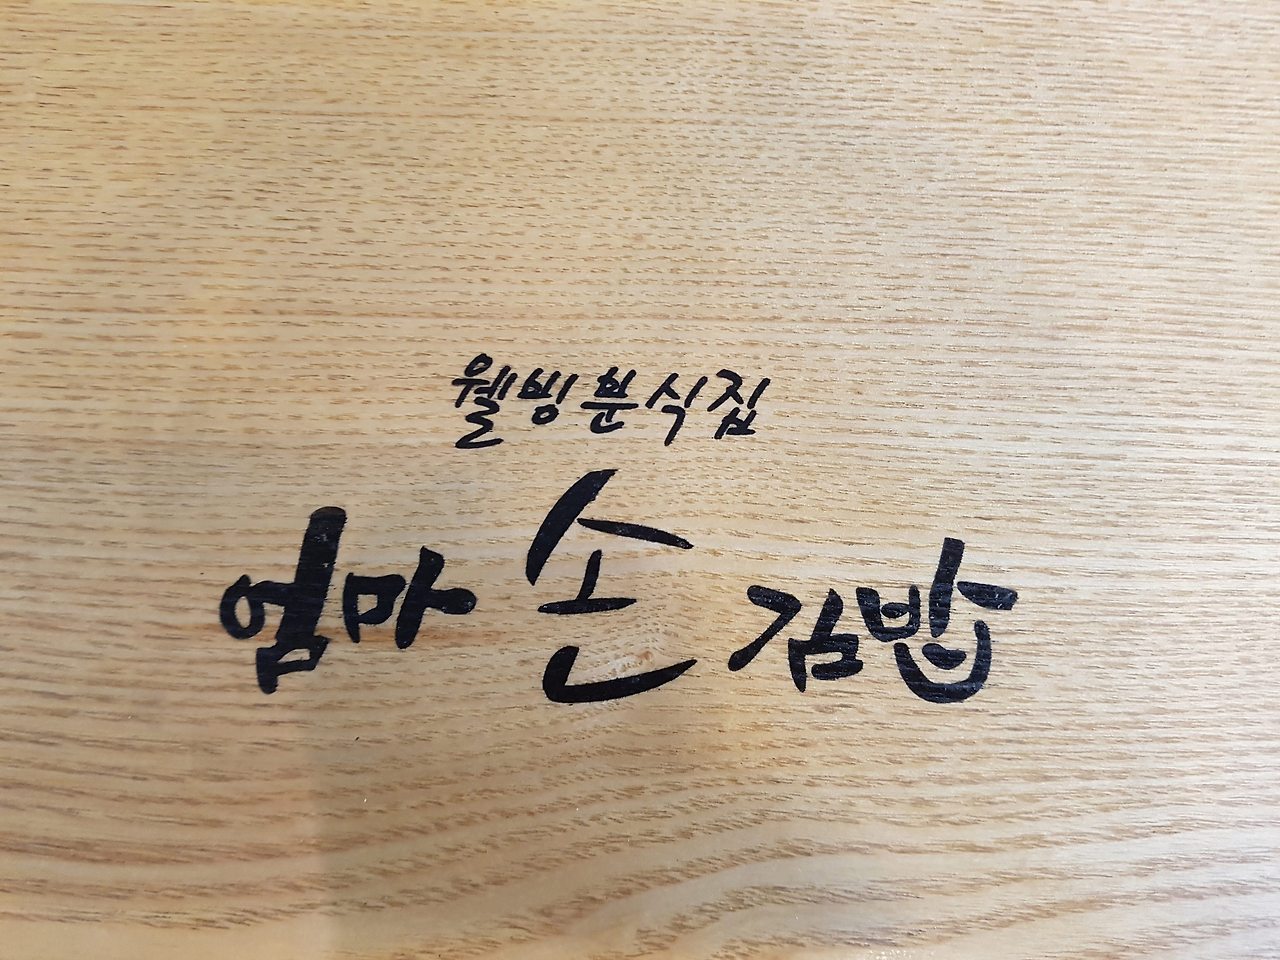 웰빙분식집
엄마손김밥